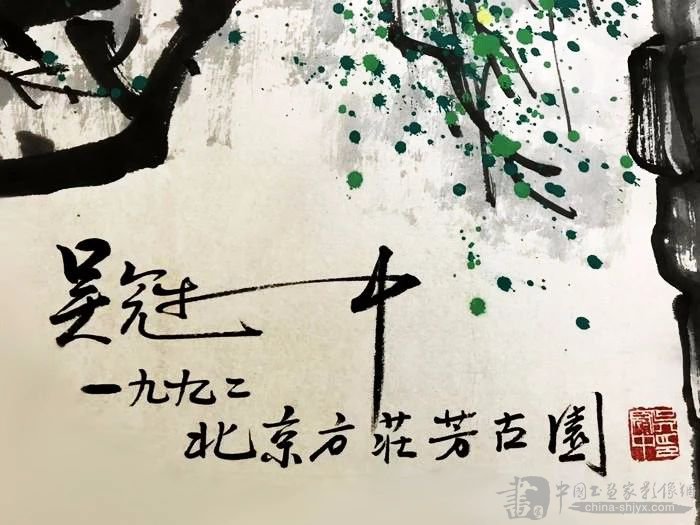 吴冠中
一九九二
北京方莊芳古園
吴冠中印
中国书画家影像网
china-shjyx.com